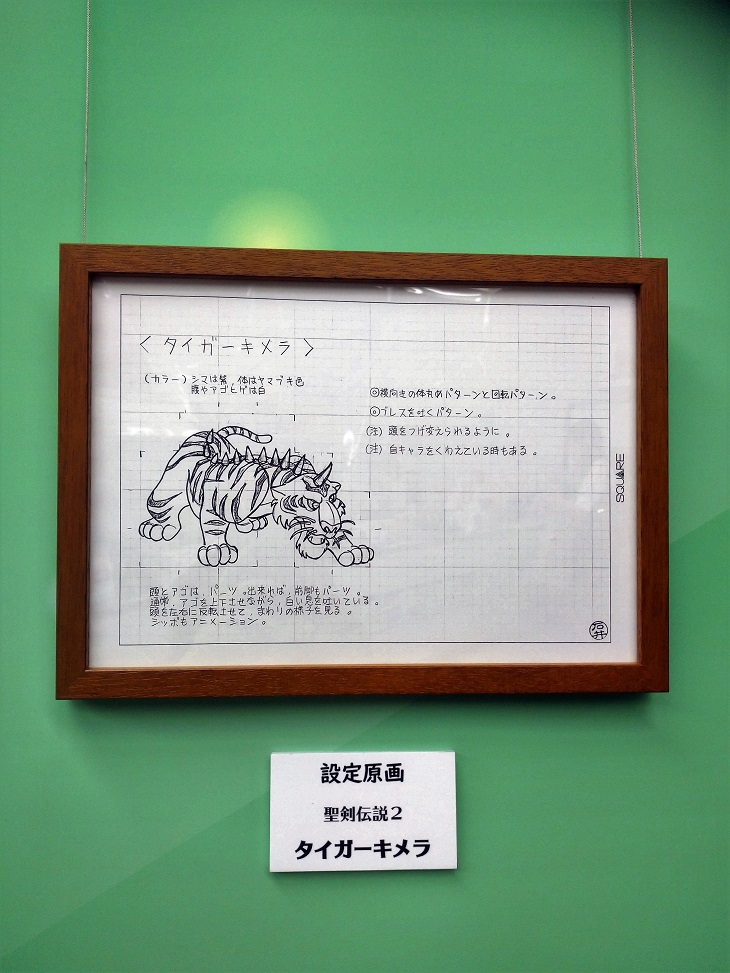 〈タイガーキメラ〉
(カラー)シマは紫、体はヤマブキ色
腹やアゴヒゲは白
◎横向きの体丸めパターンと回転パターン。
◎ブレスを吐くパターン。
(注)頭をつけ変えられるように。
(注)自キャラをくわえている時もある。
頭とアゴは、パーツ。出来れば、前脚もパーツ。
通常、アゴを上下させながら、白い息を吐いている。
頭を左右に反転させて、まわりの様子を見る。
シッポもアニメーション。
SQUARE
石井
設定原画
聖剣伝説2
タイガーキメラ